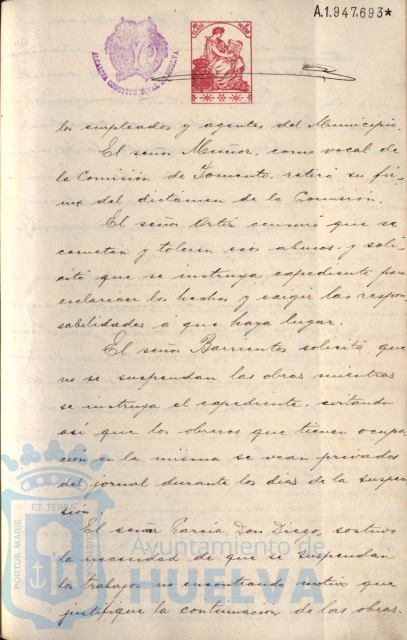 A.1.947.693*
ALCALDIA CONSTITUCIONAL HUELVA
los empleados y agentes del Municipio.
El señor Muñoz, como vocal de
la Comisión de Fomento, retiró su fir-
ma del dictamen de la Comisión.
El señor Ortiz censuró que se
cometan y toleren esos abusos, y soli-
citó que se instruya expediente para
esclarecer los hechos y exigir las respon
sabilidades á que haya lugar.
El señor Barrientos solicitó que
no se suspendan las obras mientras
se instruya el expediente, evitando
así que los obreros que tienen ocupa-
ción en la misma se vean privados
del jornal durante los días de la suspen
sión.
El señor García Don Diego, sostuvo
la necesidad de que se suspendan
los trabajos no encontrando motivo que
justifique la continuación de las obras.
PORTUS MARIS ET TERRÆ
Ayuntamiento de
HUELVA